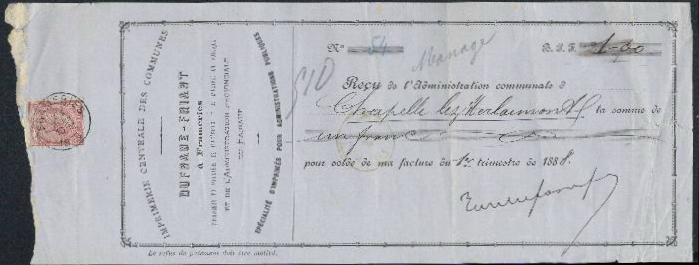 IMPRIMERIE CENTRALE DES COMMUNES
DUFRANE-FRIANT
à Frameries
ET DE L'ADMINISTRATION PROVINCIALE
DU HAINAUT
SPÉCIALITÉ D'IMPRIMÉS POUR ADMINISTRATIONS PUBLIQUES
N° 54
Manage
B. P. F. 1-00
510
Reçu de l'Administration communale d
Chapelle lez Herlaimont la somme de
un franc
pour solde de ma facture du 1er trimestre de 1888.
Le refus de paiement doit être motivé.